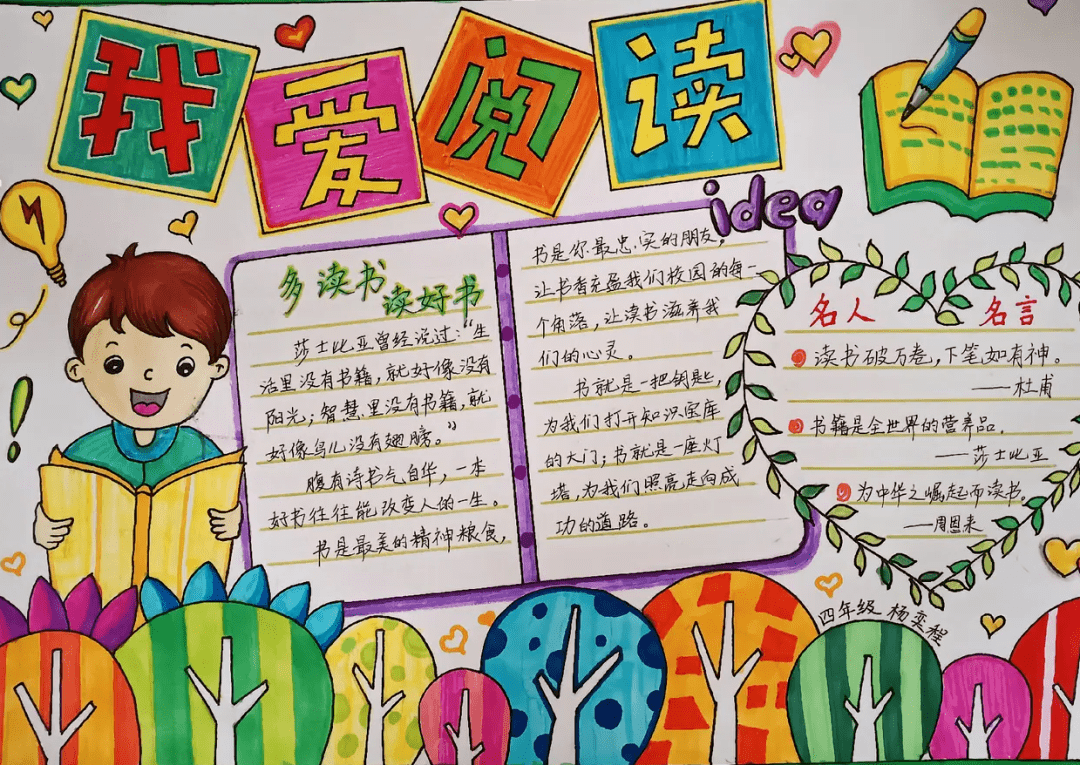 我爱阅读
idea
多读书
读好书
莎士比亚曾经说过:“生
活里没有书籍,就好像没有
阳光;智慧里没有书籍,就
好像鸟儿没有翅膀。”
腹有诗书气自华,一本
好书往往能改变人的一生。
书是最美的精神粮食,
书是你最忠实的朋友,
让书香充盈我们校园的每一
个角落,让读书滋养我
们的心灵。
书就是一把钥匙,
为我们打开知识宝库
的大门;书就是一座灯
塔,为我们照亮走向成
功的道路。
名人 名言
读书破万卷,下笔如有神。
——杜甫
书籍是全世界的营养品.
——莎士比亚
为中华之崛起而读书。
——周恩来
四年级 杨奕程